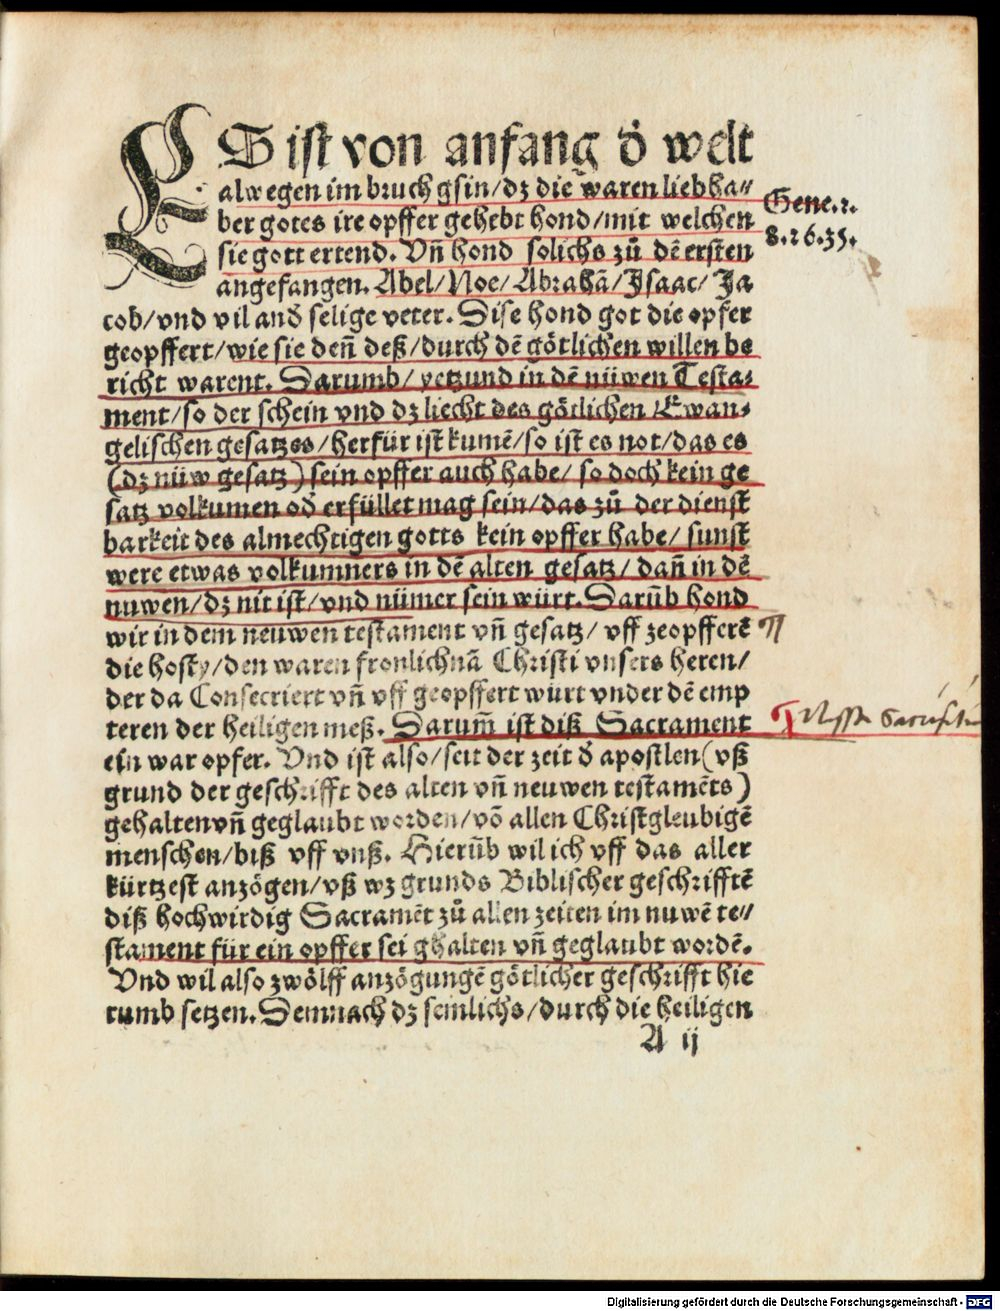 ES ist von anfang d̕ welt
alwegen im bruch gsin/dz die waren liebha⸗
ber gotes ire opffer gehebt hond/mit welchen
sie gott ertend. Vñ hond solichs zů dẽ ersten
angefangen. Abel/Noe/Abrahã/Isaac/Ja
cob/vnd vil and̕ selige veter. Dise hond got die opfer
geopffert/wie sie deñ deß/durch dẽ götlichen willen be
richt warent. Darumb/yetzund in dẽ nüwen Testa⸗
ment/so der schein vnd dz liecht des götlichen Ewan⸗
gelischen gesatzes/herfür ist kumẽ/so ist es not/das es
(dz nüw gesatz) sein opffer auch habe/so doch kein ge
satz volkumen od̕ erfüllet mag sein/das zů der dienst
barkeit des almechtigen gotts kein opffer habe/sunst
were etwas volkumners in dẽ alten gesatz/dañ in dẽ
nuwen/dz nit ist/vnd nümer sein würt. Darũb hond
wir in dem neuwen testament vñ gesatz/vff zeopfferẽ
die hosty/den waren fronlichnã Christi vnsers heren/
der da Consecriert vñ vff geopffert würt vnder dẽ emp
teren der heiligen meß. Darum̃ ist diß Sacrament
ein war opfer. Vnd ist also/seit der zeit d̕ apostlen (vß
grund der geschrifft des alten vñ neuwen testamẽts)
gehalten vñ geglaubt worden/võ allen Christgleubigẽ
menschen/biß vff vnß. Hierũb wil ich vff das aller
kürtzest anzögen/vß wz grunds Biblischer geschrifftẽ
diß hochwirdig Sacramẽt zů allen zeiten im nuwẽ te⸗
stament für ein opffer sei ghalten vñ geglaubt wordẽ.
Vnd wil also zwölff anzögungẽ götlicher geschrifft hie
rumb setzen. Demnach dz semlichs/durch die heiligen
A ij
Gene.
8.26.35.
Digitalisierung gefördert durch die Deutsche Forschungsgemeinschaft - DFG